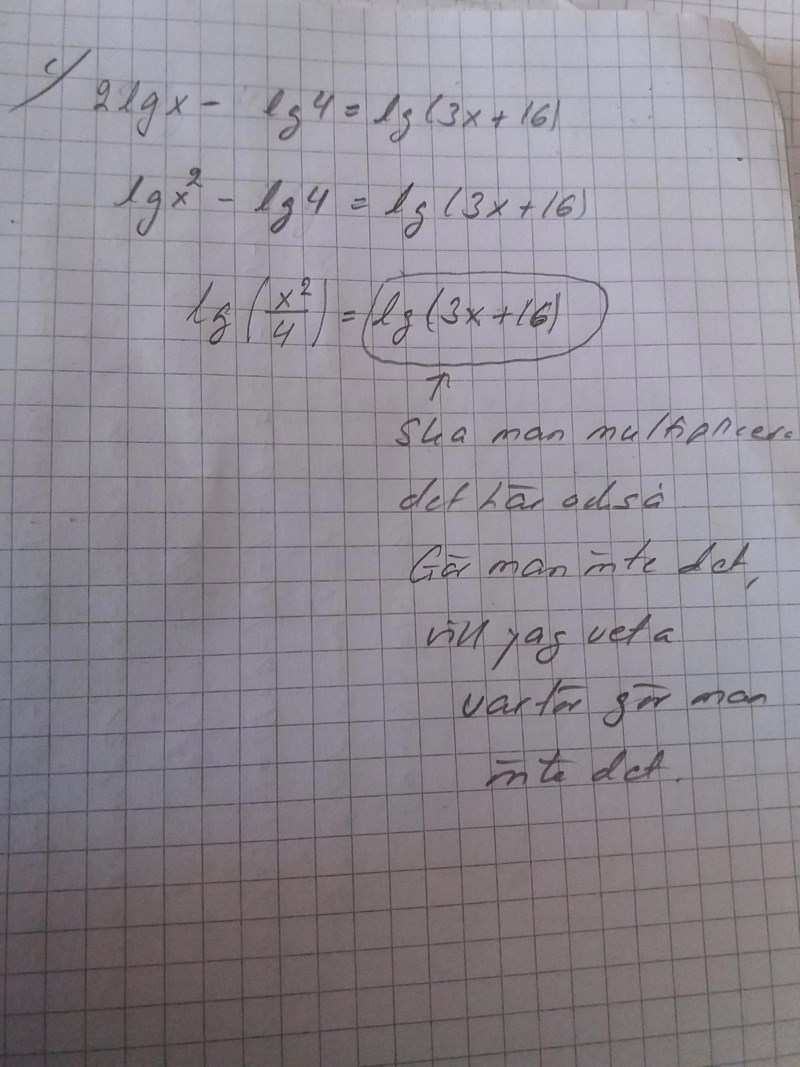 c) 2lgx - lg4 = lg(3x+16)
lgx² - lg4 = lg(3x+16)
lg(x²/4) = lg(3x+16)
↑
Ska man multiplicera
det här också
Gör man inte det,
vill jag veta
varför gör man
inte det.